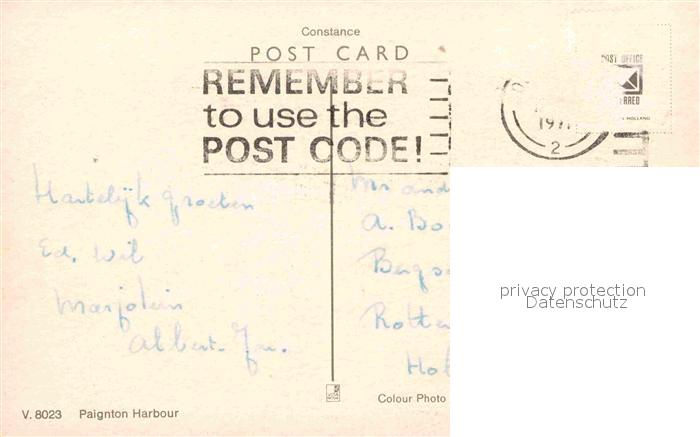 Constance
POST CARD
REMEMBER
to use the
POST CODE!
POST OFFICE
HOLLAND
1971
2
Hartelijk groeten
Ed. Wil
Marjolein
Albert. Jr.
Mr and
A. Bo
Bergs
Rotte
Hol
privacy protection
Datenschutz
V. 8023 Paignton Harbour
Colour Photo